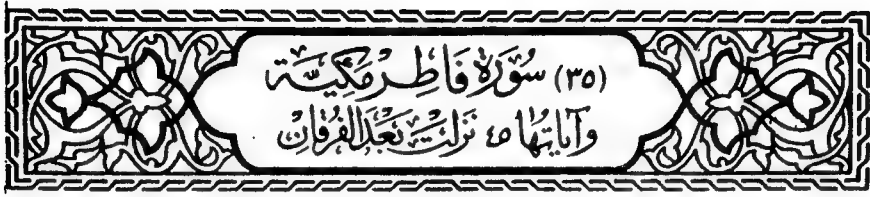 (٣٥) سُوْرَةُ فَاطِرْ مَكِّيَّتَہ
وَآيَاتُهَا ٤٥ نَزَلَتْ بَعْدَ الفُرْقَانِ